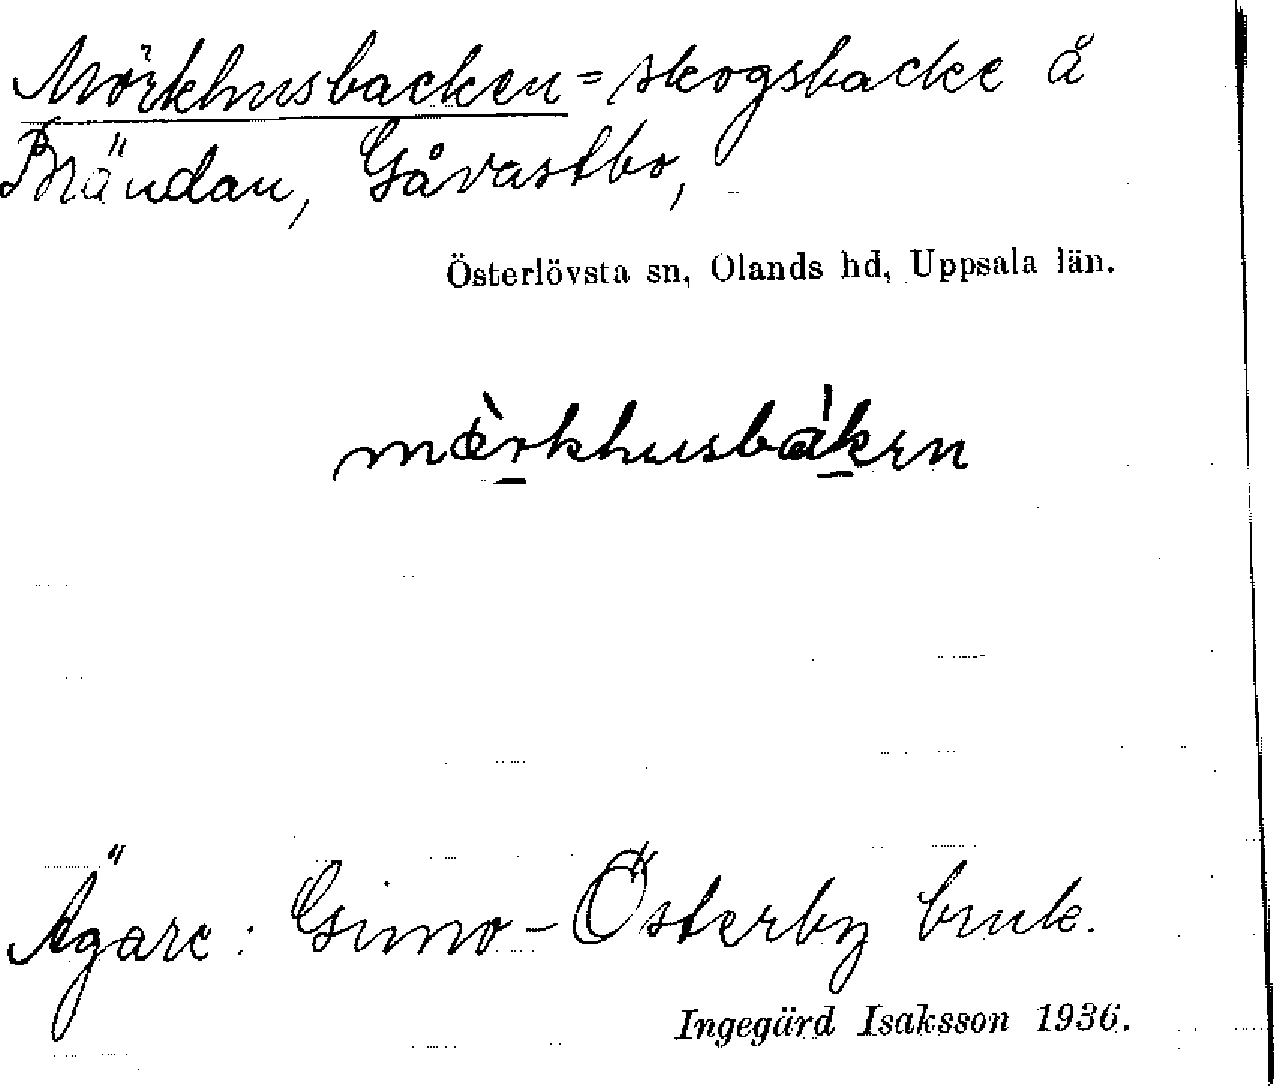 Mörkhusbacken = skogsbacke å
Brändan, Gåvastbo,
Österlövsta sn, Olands hd, Uppsala län.
mœ̀rkhusbàkɛn
Ägare: Gimo-Österby bruk.
Ingegärd Isaksson 1936.